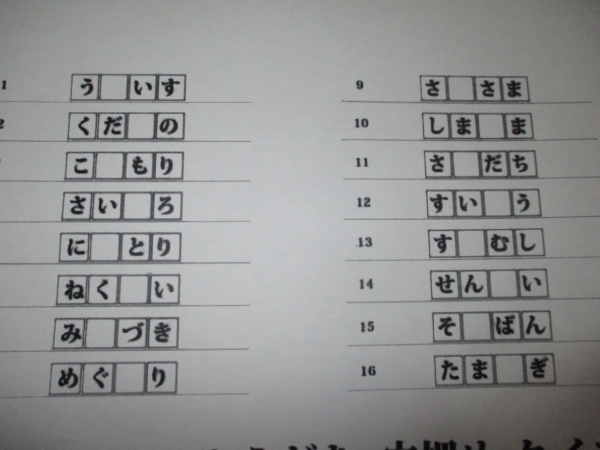 1 う いす
2 くだ の
こ もり
さい ろ
に とり
ねく い
み づき
めぐ り
9 さ さま
10 しま ま
11 さ だち
12 すい う
13 す むし
14 せん い
15 そ ばん
16 たま ぎ